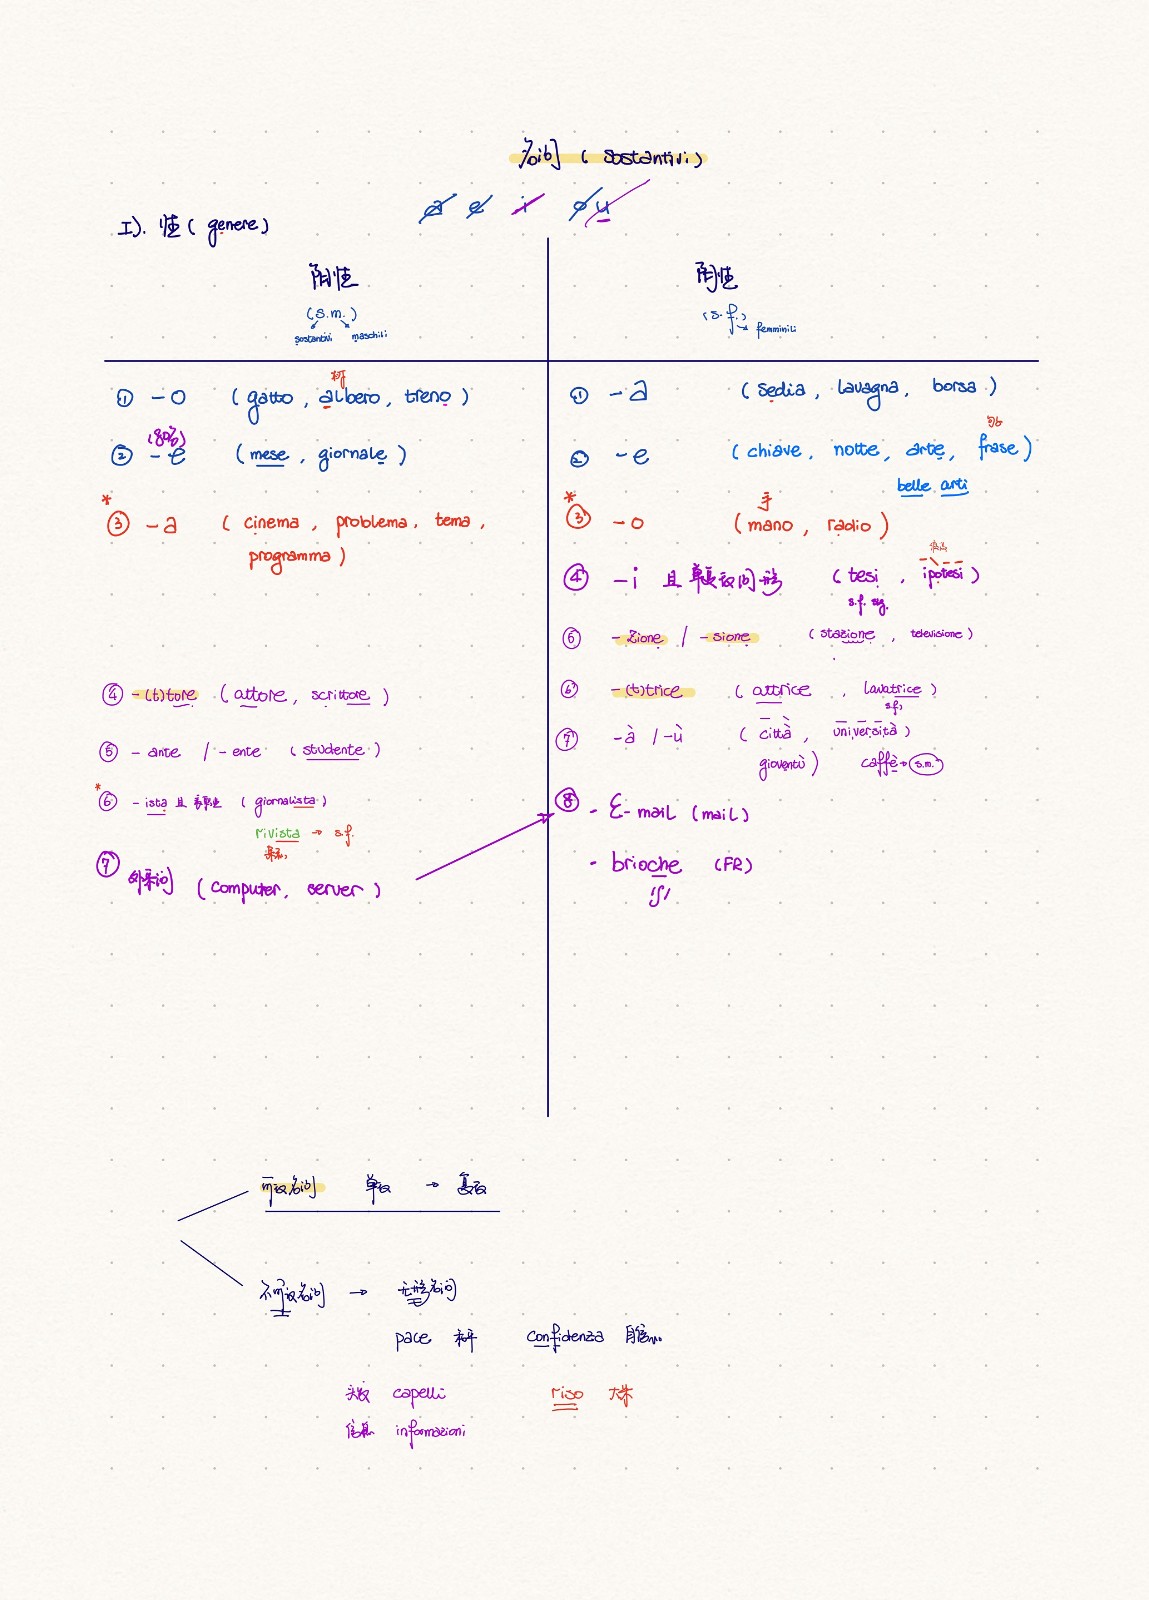 名词 ( sostantivi )
a e i o u
I). 性 ( genere )
阳性
(s.m.)
sostantivi maschili
阴性
(s.f.)
femminili
① -o ( gatto , albero , treno )
树
② -e ( mese , giornale )
(80%)
* ③ -a ( cinema , problema , tema ,
programma )
④ -(t)tore ( attore , scrittore )
⑤ - ante / - ente ( studente )
* ⑥ - ista 且 表职业 ( giornalista )
rivista → s.f.
杂志
⑦ 外来词 ( computer , server )
① -a ( sedia , lavagna , borsa )
② -e ( chiave , notte , arte , frase )
句子
belle arti
* ③ -o ( mano , radio )
手
④ -i 且 单复数同形 ( tesi , ipotesi )
s.f. sig.
⑤ -zione / -sione ( stazione , televisione )
⑥ -(t)trice ( attrice , lavatrice )
s.f.
⑦ -à / -ù ( città , università )
gioventù ) caffè → s.m.
⑧ - E-mail (mail)
- brioche (FR)
/ʃ/
可数名词 单数 → 复数
不可数名词 → 无形名词
pace 和平 confidenza 自信
头发 capelli riso 大米
信息 informazioni